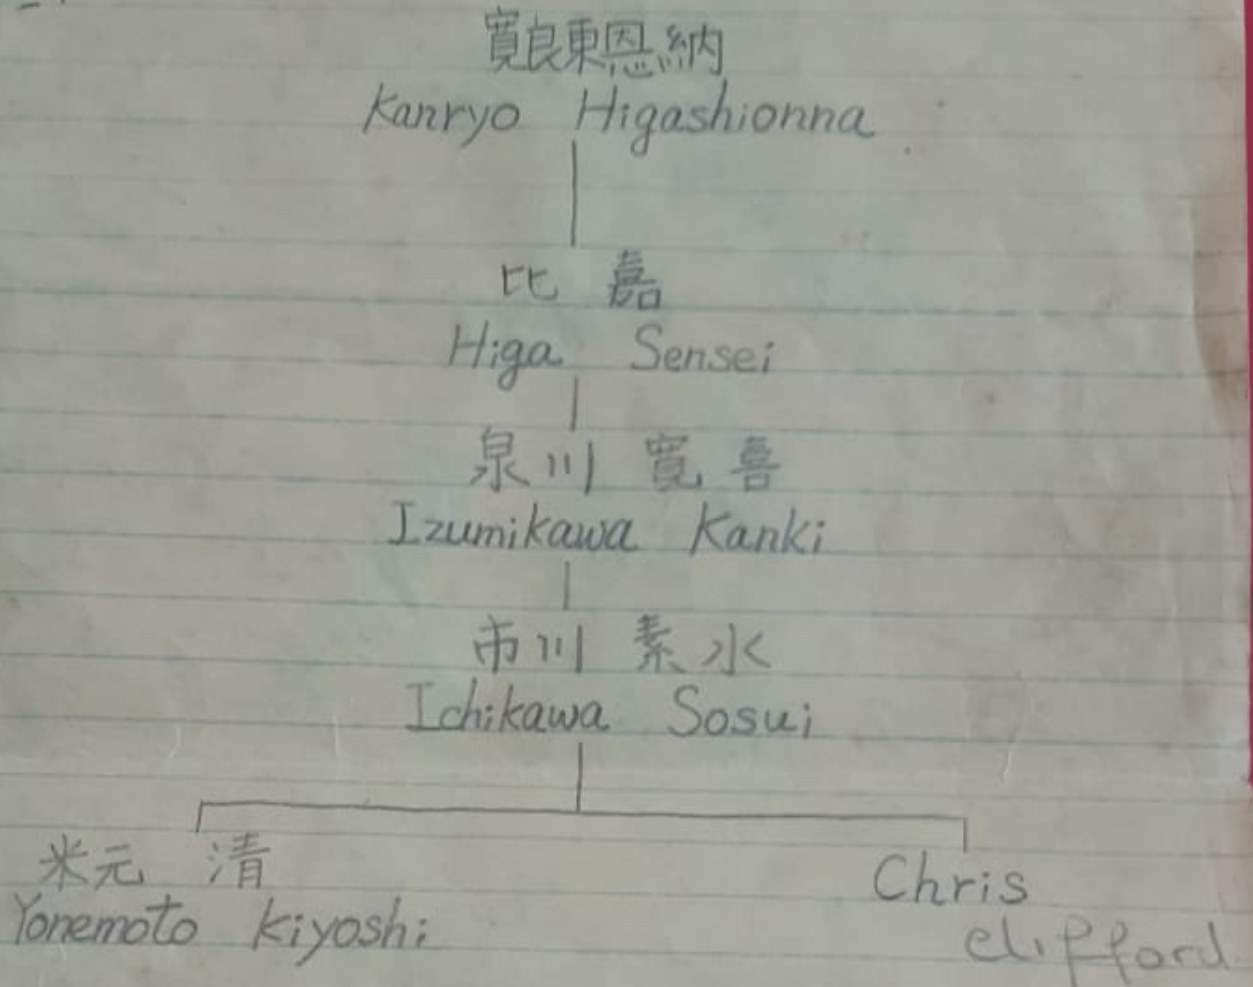 寛良東恩納
Kanryo Higashionna
比 嘉
Higa Sensei
泉川 寛喜
Izumikawa Kanki
市川 素水
Ichikawa Sosui
米元 清
Yonemoto Kiyoshi
Chris
Clifford